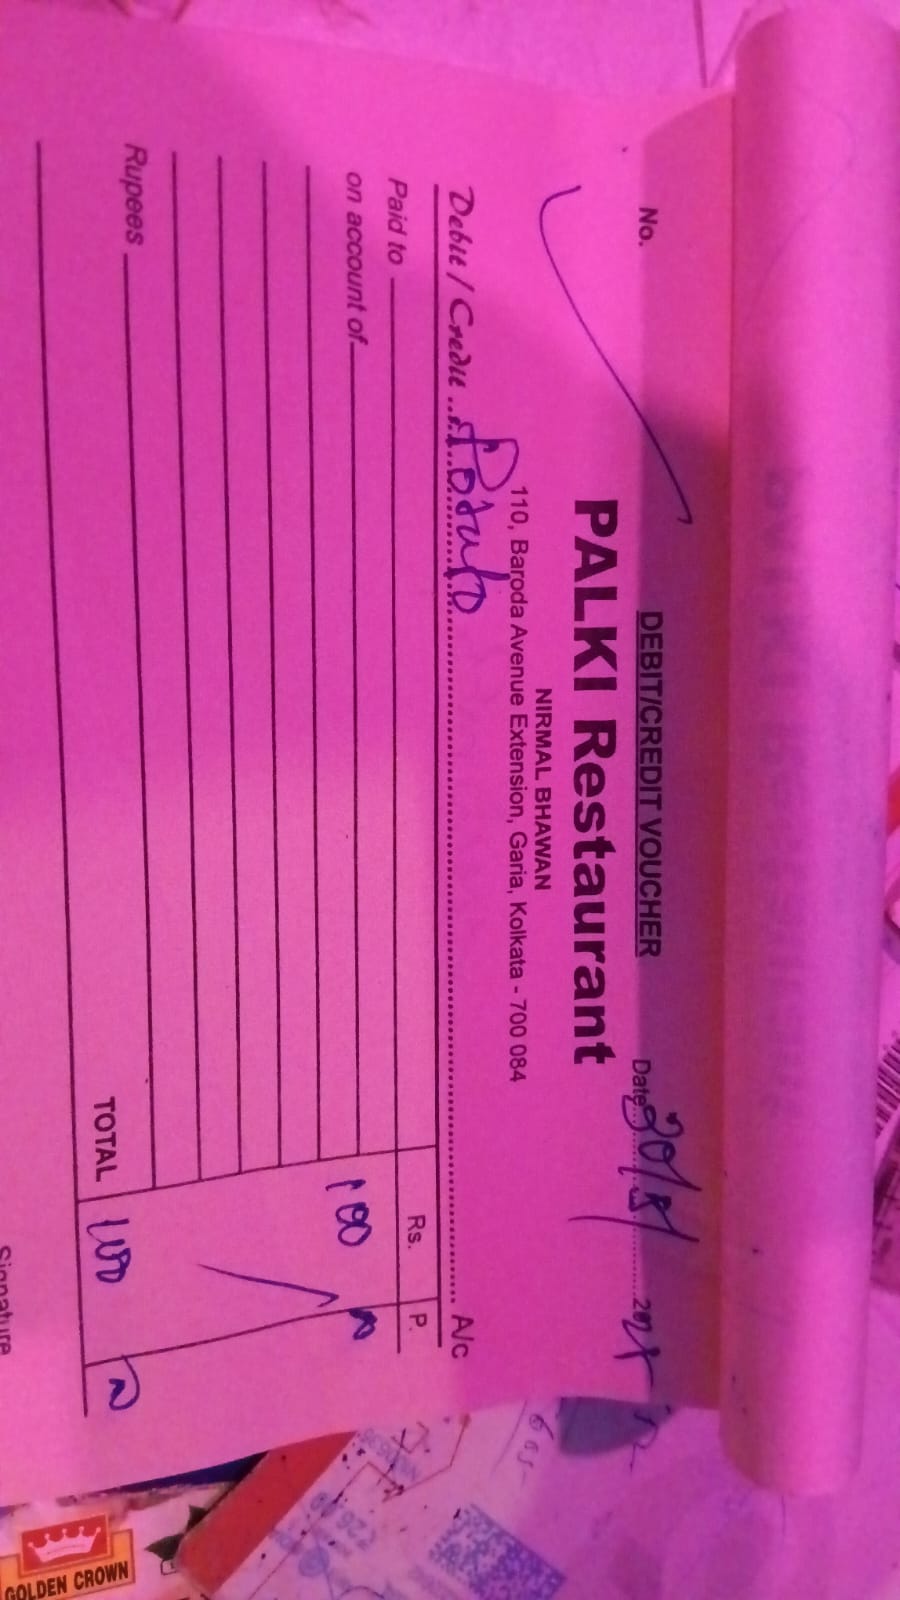 DEBIT/CREDIT VOUCHER
No. Date 20/5/ 202
PALKI Restaurant
NIRMAL BHAWAN
110, Baroda Avenue Extension, Garia, Kolkata - 700 084
Debit / Credit Potato A/c
Paid to Rs. P.
on account of 100
Rupees TOTAL 100
Signature
GOLDEN CROWN